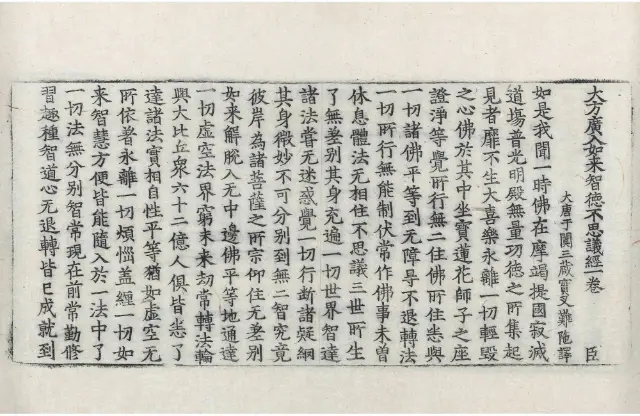 大方廣入如来智徳不思議經一卷 臣
大唐于闐三蔵實叉難陁譯
如是我聞一時佛在摩竭提國寂滅
道塲普光明殿無量功徳之所集起
見者靡不生大喜樂永離一切輕毀
之心佛於其中坐寶蓮花師子之座
證淨等覺所行無二住佛所住悉與
一切諸佛平等到无障导不退轉法
一切所行無能制伏常作佛事未曽
休息體法无相住不思議三世所生
了無差别其身充遍一切世界智達
諸法甞无迷惑覺一切行斷諸疑網
其身微妙不可分别到無二智究竟
彼岸為諸菩薩之所宗仰住无差别
如来解脫入无中邊佛平等地通達
一切虚空法界窮未来劫常轉法輪
與大比丘衆六十二億人俱皆悉了
達諸法實相自性平等猶如虚空无
所依著永離一切煩惱盖纏一切如
来智慧方便皆能隨入於一法中了
一切法無分别智常現在前常勤修
習趣種智道心无退轉皆已成就到